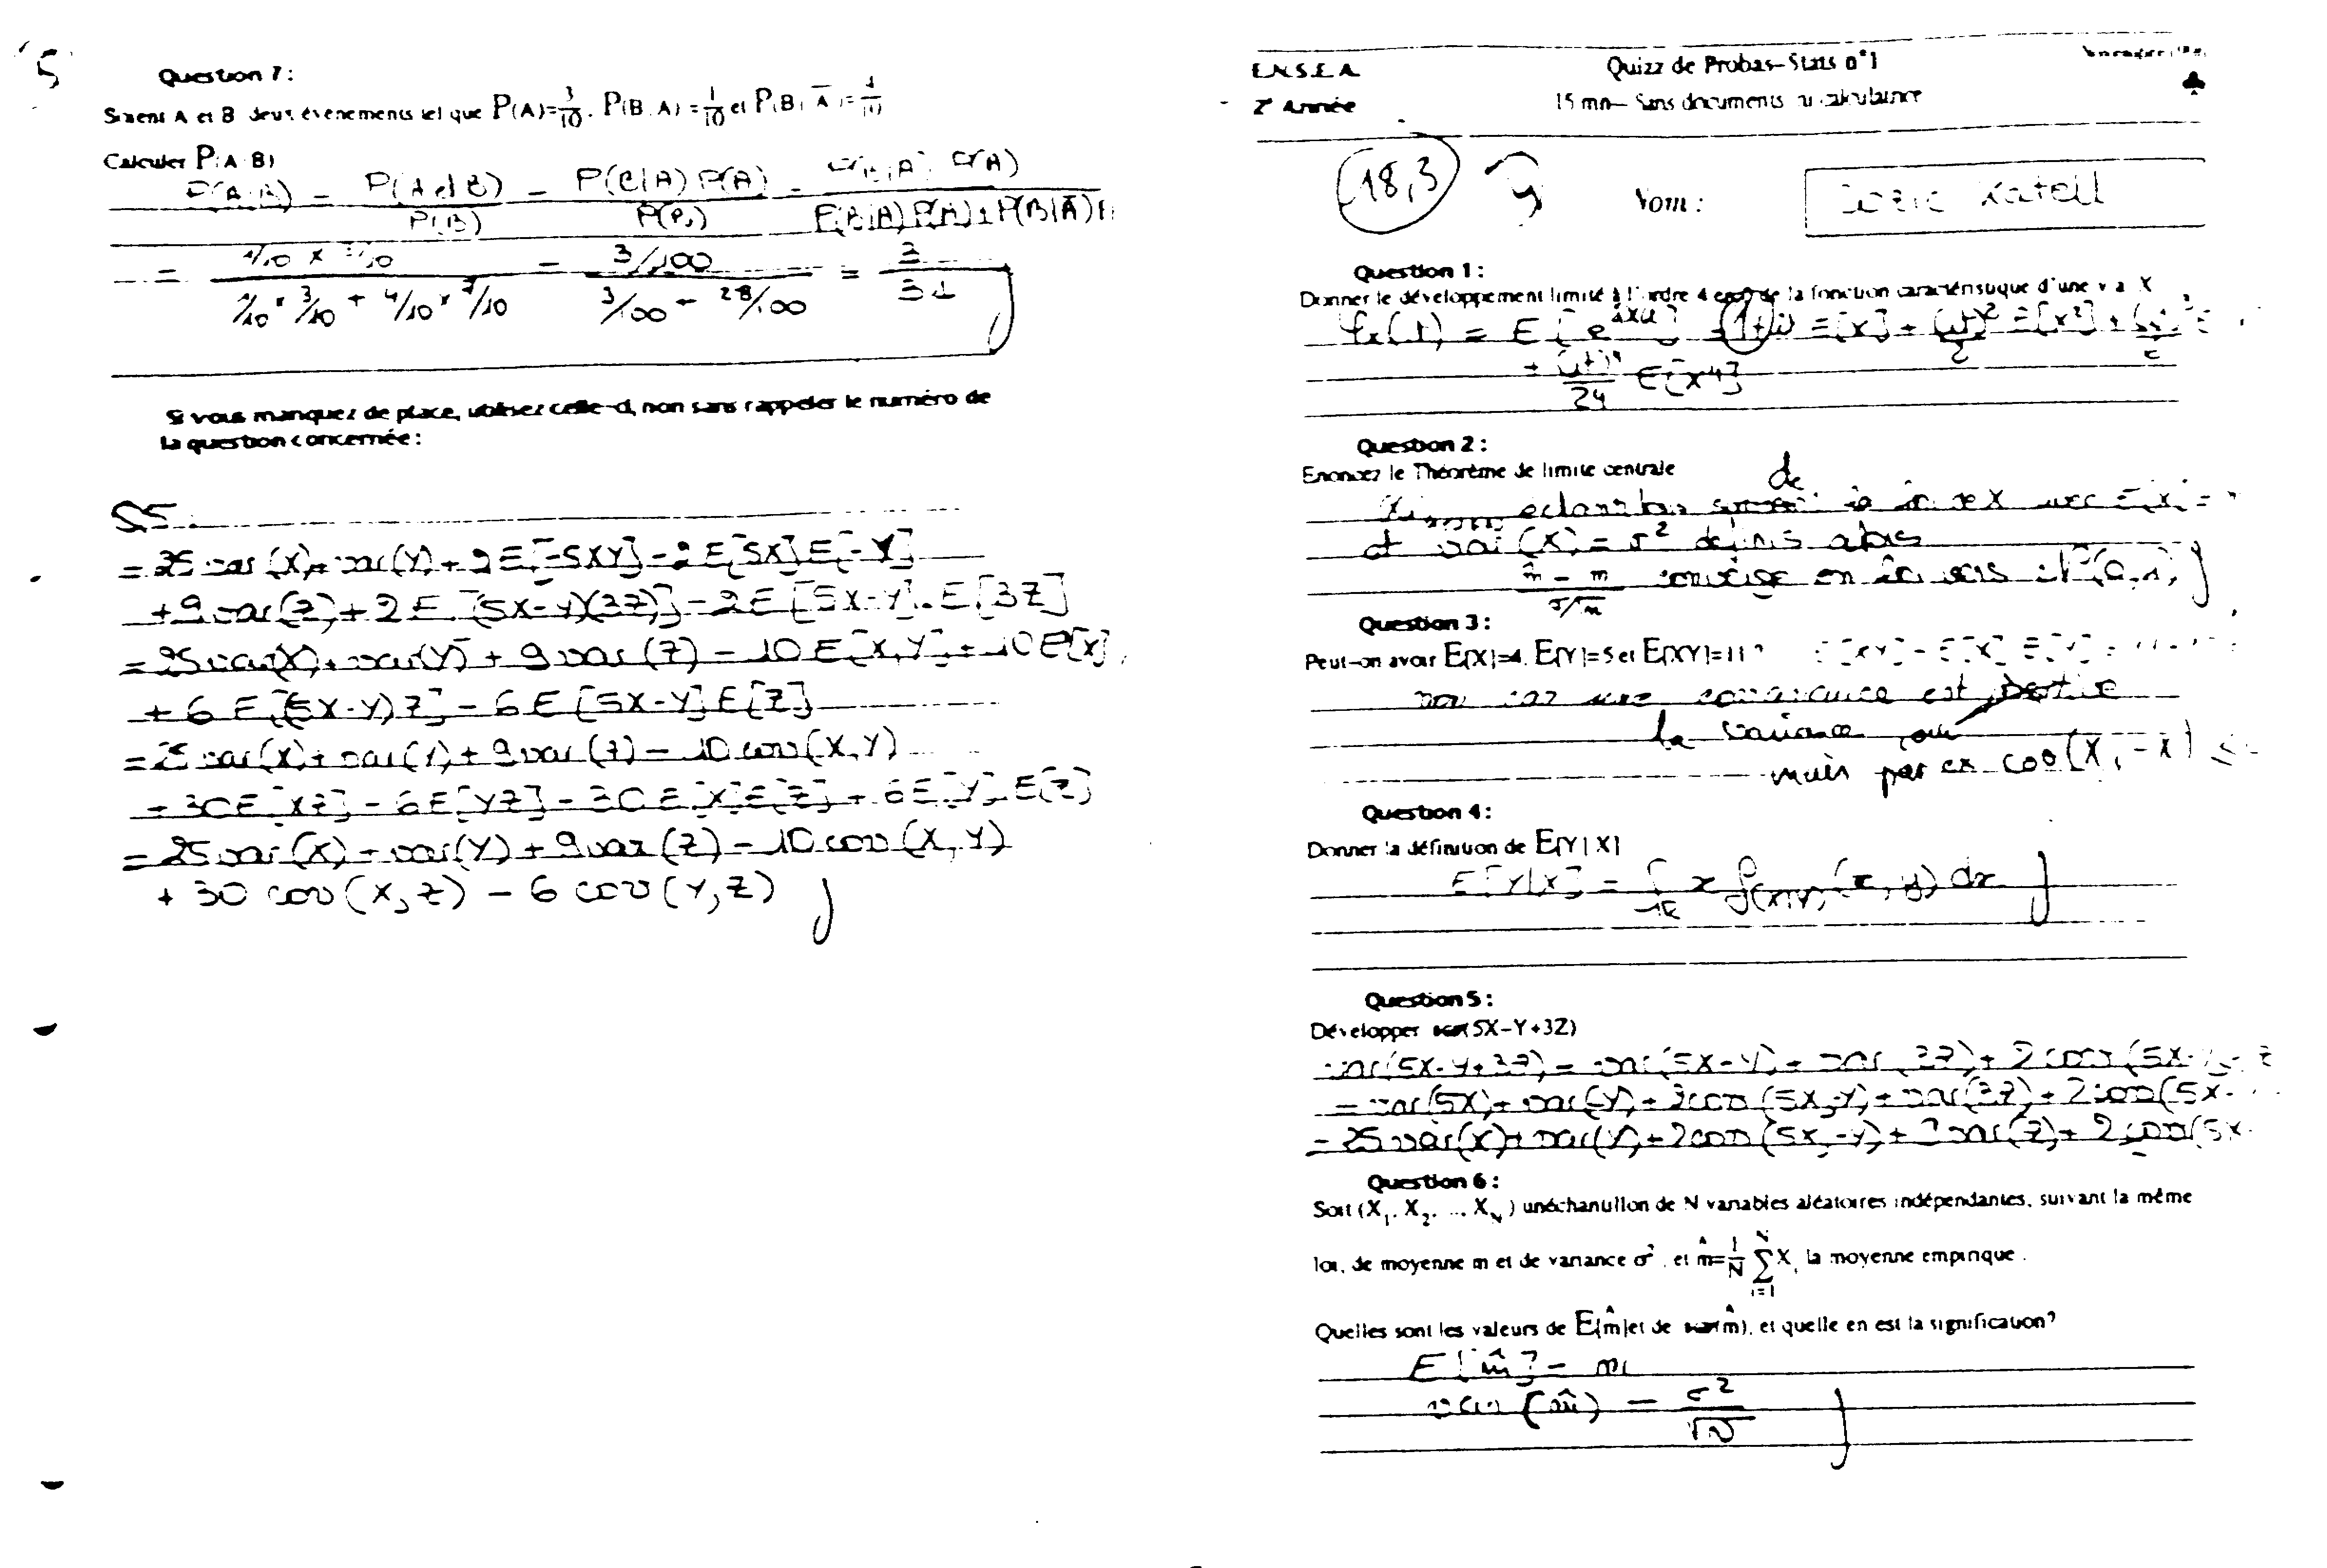 Question 7 :
Soient A et B deux événements tel que P(A)=3/10, P(B|A)=1/10 et P(B|A̅)=4/10
Calculer P(A|B)
P(A|B) = P(A et B)/P(B) = P(B|A) P(A)/P(B) = P(B|A) P(A)/P(B|A) P(A) + P(B|A̅)
= 1/10 x 3/10 / 1/10 x 3/10 + 4/10 x 7/10 = 3/100 / 3/100 + 28/100 = 3/31
Si vous manquez de place, utilisez celle-ci, non sans rappeler le numéro de
la question concernée :
Q5 :
= 25 var(X) + var(Y) + 2E[-5XY] - 2E[5X]E[-Y]
+ 9 var(Z) + 2E[(5X-Y)(3Z)] - 2E[5X-Y].E[3Z]
= 25 var(X) + var(Y) + 9 var(Z) - 10E[X,Y] + 10E[X]
+ 6E[(5X-Y)Z] - 6E[5X-Y]E[Z]
= 25 var(X) + var(Y) + 9 var(Z) - 10 cov(X,Y)
+ 30E[XZ] - 6E[YZ] - 30E[X]E[Z] + 6E[Y].E[Z]
= 25 var(X) + var(Y) + 9 var(Z) - 10 cov(X,Y)
+ 30 cov(X,Z) - 6 cov(Y,Z)
E.N.S.E.A.
Quizz de Probas-Stats n°1
2° Année
15 mn- Sans documents ni calculatrice
18,3
Nom : Katell
Question 1 :
Donner le développement limité à l'ordre 4 en 0 de la fonction caractéristique d'une v a X
+ (it)⁴/24 E[X⁴]
Question 2 :
Enoncez le Théorème de limite centrale
de
et var(X) = σ² définis alors
m̂ - m / σ/√n converge en loi vers N(0,1)
Question 3 :
Peut-on avoir E[X]=4, E[Y]=5 et E[XY]=11 ? E[XY] - E[X] E[Y] =
non car une covariance est positive
la variance oui
mais par ex cov(X,-X) ≤
Question 4 :
Donner la définition de E[Y|X]
E[Y|X] = ∫ x f(X,Y)(x,y) dx
Question 5 :
Développer var(5X-Y+3Z)
var(5X-Y+3Z) = var(5X-Y) + var(3Z) + 2 cov(5X-
= var(5X) + var(-Y) + 2cov(5X,-Y) + var(3Z) + 2cov(5X-
= 25 var(X) + var(Y) + 2cov(5X,-Y) + 9 var(Z) + 2 cov(5X-
Question 6 :
Soit (X₁, X₂, ... X_N) unéchantillon de N variables aléatoires indépendantes, suivant la même
loi, de moyenne m et de variance σ², et m̂=1/N Σ_{i=1}^{N} X_i la moyenne empirique .
Quelles sont les valeurs de E[m̂]et de var(m̂), et quelle en est la signification?
E[m̂] = m
var(m̂) = σ²/√N